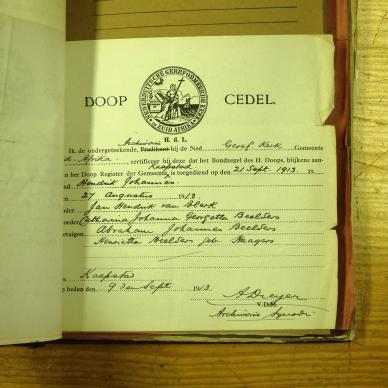 NEDERDUITSCHE GEREFORMEERDE KERK
ZUID AFRIKA
DOOP CEDEL.
H. d. L.
Archivaris
Ik, de ondergeteekende, Predikant bij de Ned Geref Kerk Gemeente
d. Afrika, certificeer bij deze dat het Bondzegel des H. Doops, blijkens aan-
Kaapstad
het Doop Register der Gemeente, is toegediend op den 21 Sept. 1913. 19
Hendrik Johannes
27 Augustus 1913.
Jan Hendrik van Blerk
Catharina Johanna Georgetta Beelders
Abraham Johannes Beelders
Henrietta Beelders geb.
Kaapstad
heden den 9 den Sept 1913.
A Dreyer
V.D.M.
Archivaris Synodi